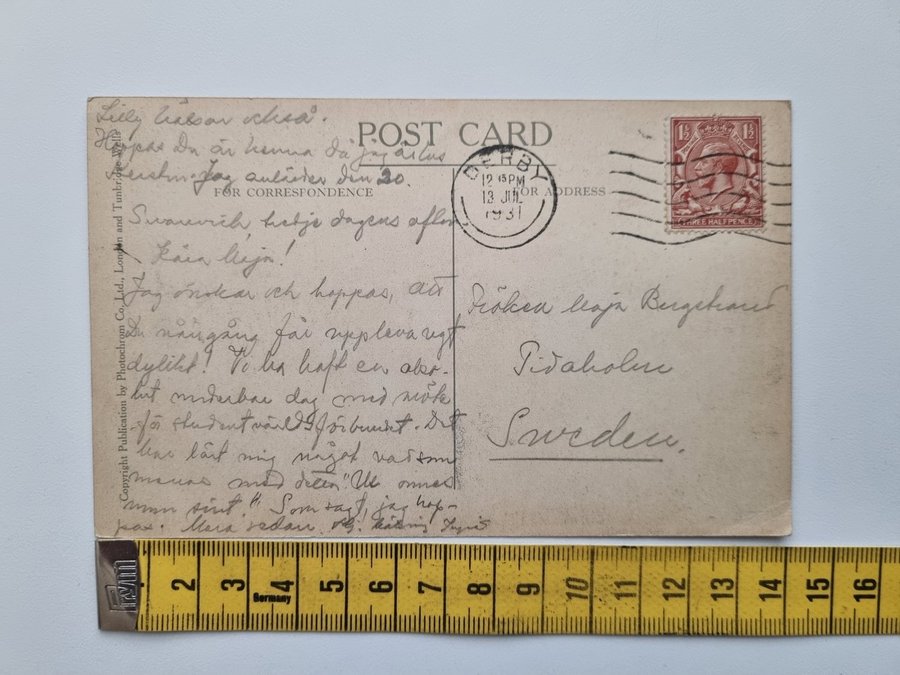 Lilly hälsar också.
Hoppas Du är hemma då jag
Jag anländer den 20.
POST CARD
FOR CORRESPONDENCE
FOR ADDRESS
Swanwick, tredje dagens afton
Kära Maja!
Jag önskar och hoppas, att
Du någon gång får uppleva ngt
dylikt! Vi ha haft en abso-
lut underbar dag med möte
för studentvärldsförbundet. Det
har lärt mig något vad som
menas med detta "Ut omnes
unum sint." Som sagt, jag hop-
pas. Mera sedan.
Copyright Publication by Photochrom Co. Ltd., London and Tunbridge Wells
DERBY
12 15 PM
13 JUL
1931
1½ 1½
THREE HALFPENCE
Fröken Maja Bergstrand
Tidaholm
Sweden.
PRYM
2 3 4 5 6 7 8 9 10 11 12 13 14 15 16
Germany